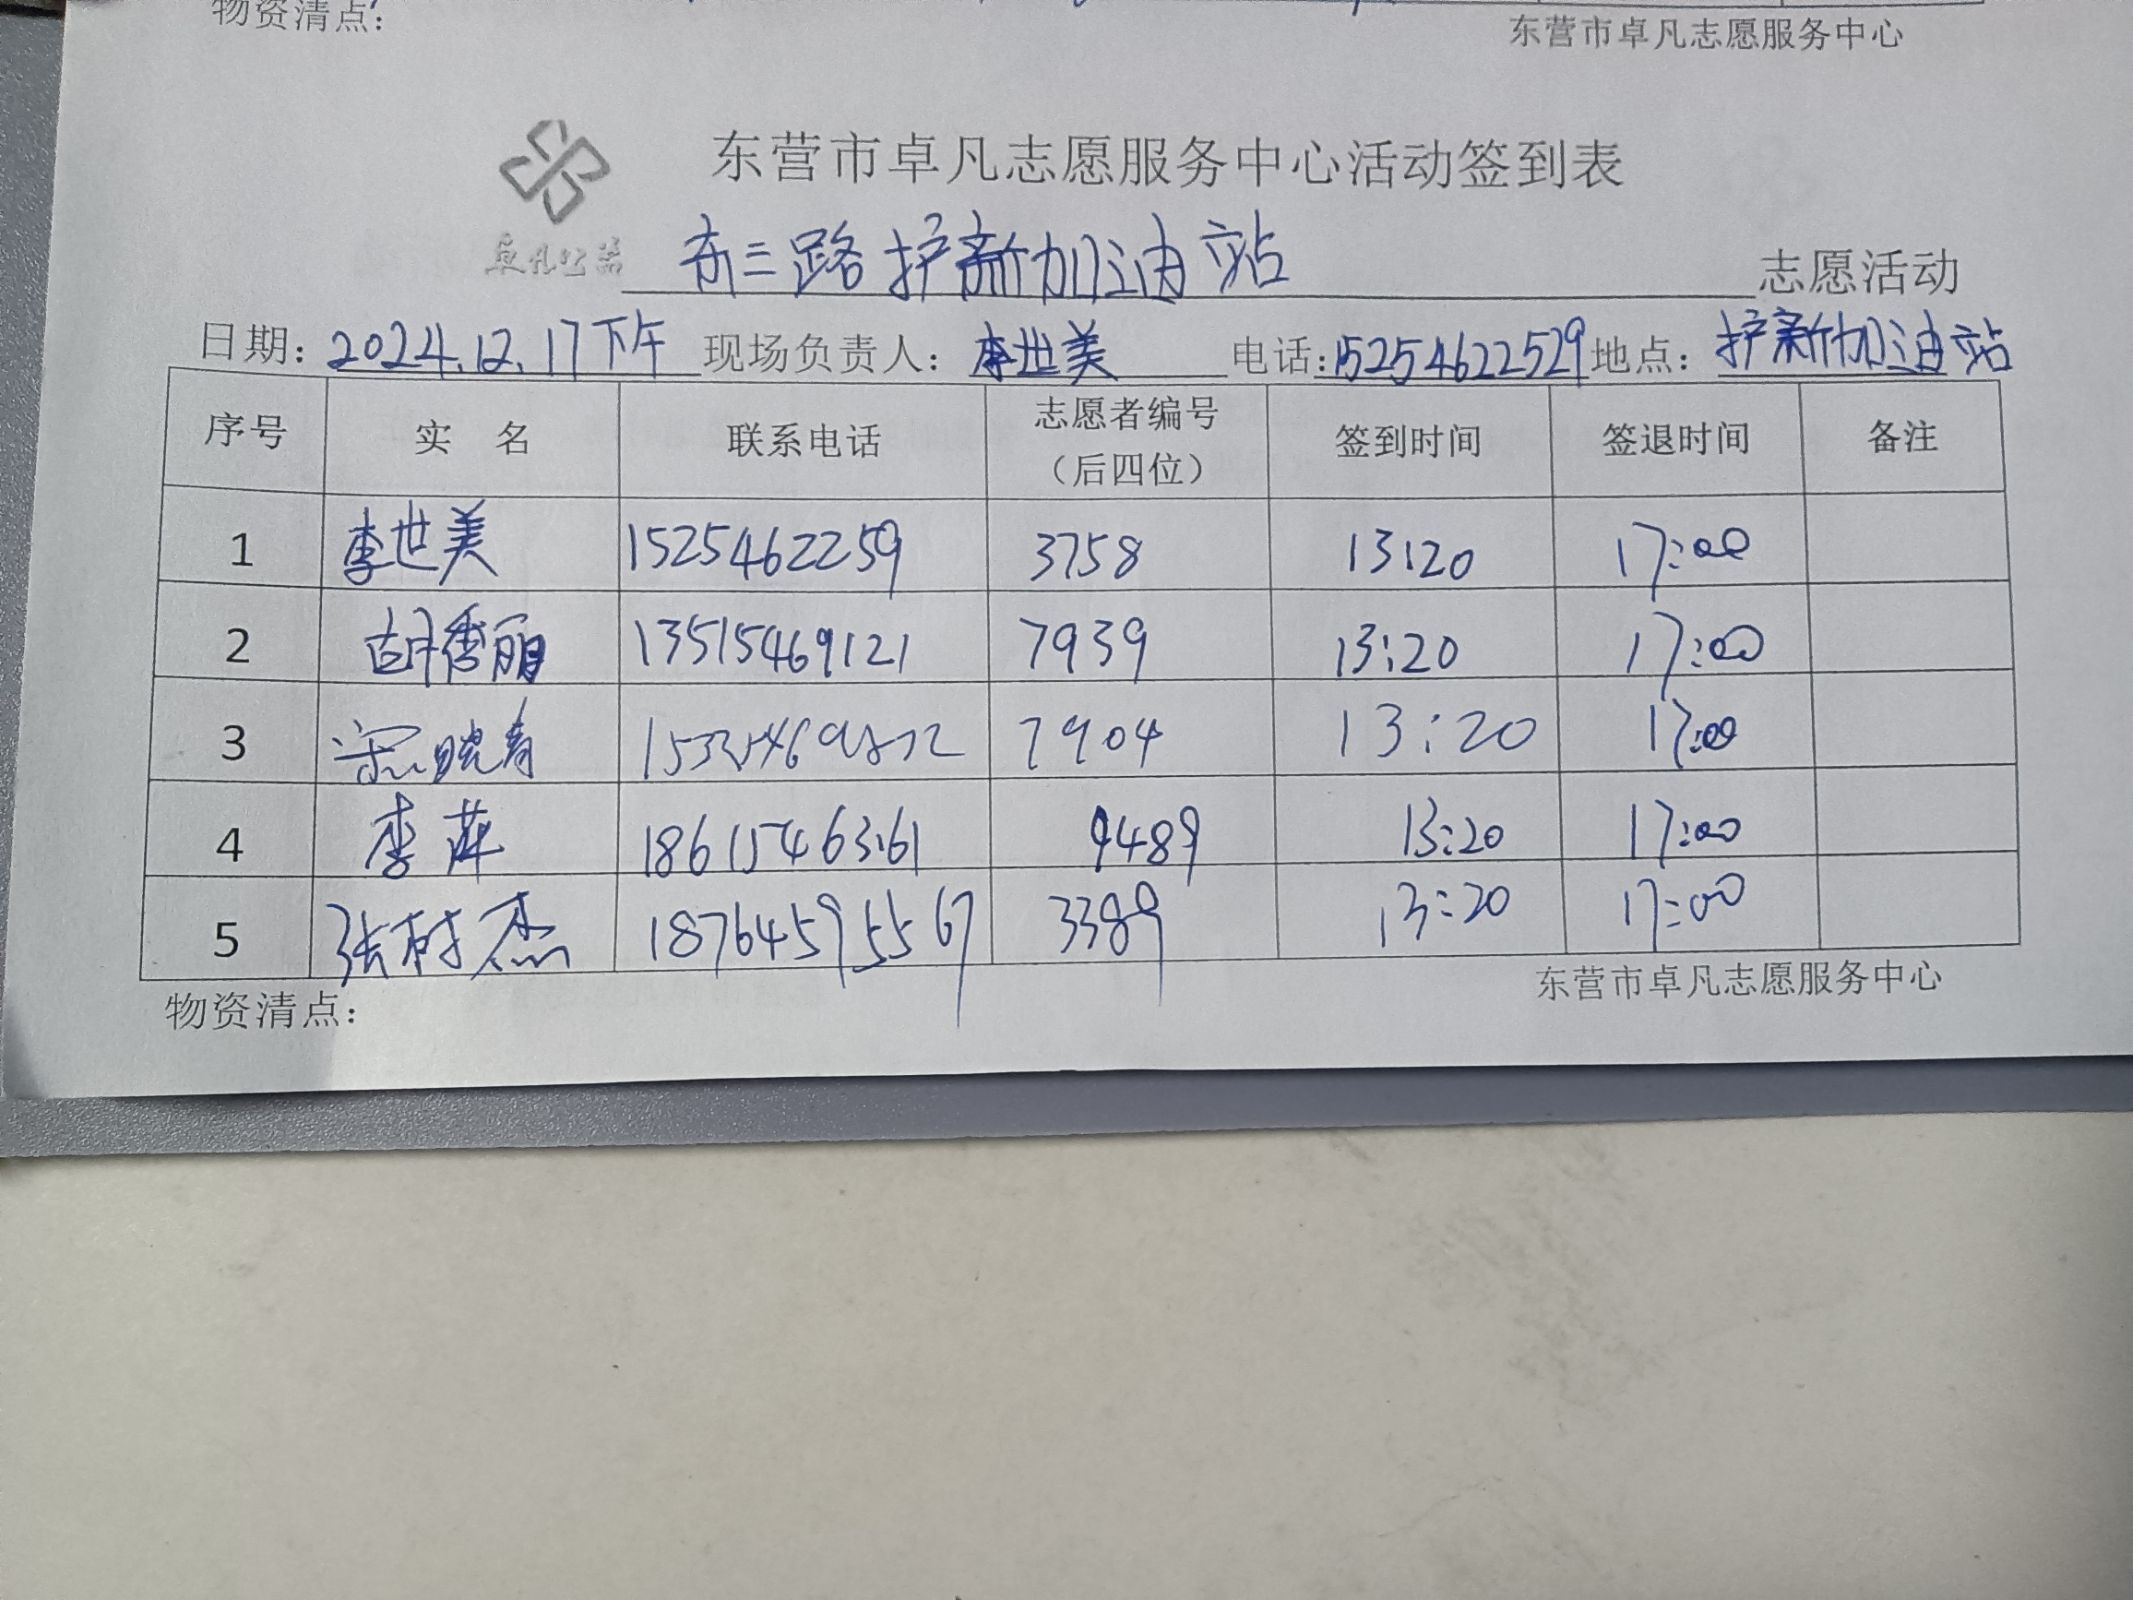 物资清点：
东营市卓凡志愿服务中心
东营市卓凡志愿服务中心活动签到表
卓凡公益
东三路护新加油站 志愿活动
日期：2024.12.17下午 现场负责人：李世美 电话：15254622529 地点：护新加油站
序号 实 名 联系电话 志愿者编号（后四位） 签到时间 签退时间 备注
1 李世美 1525462259 3758 13:20 17:00
2 胡秀丽 13515469121 7939 13:20 17:00
3 宋晓青 7904 13:20 17:00
4 李萍 18615463161 9489 13:20 17:00
5 张树杰 18764595567 3389 13:20 17:00
物资清点：
东营市卓凡志愿服务中心